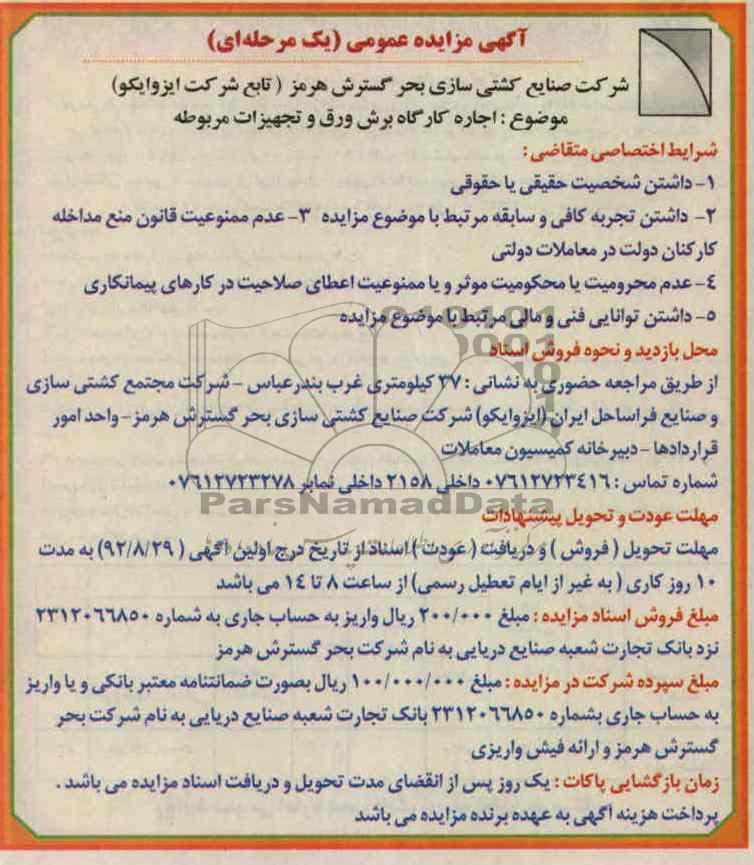 آگهی مزایده عمومی (یک مرحله‌ای)
شرکت صنایع کشتی سازی بحر گسترش هرمز ( تابع شرکت ایزوایکو)
موضوع : اجاره کارگاه برش ورق و تجهیزات مربوطه
شرایط اختصاصی متقاضی :
۱- داشتن شخصیت حقیقی یا حقوقی
۲- داشتن تجربه کافی و سابقه مرتبط با موضوع مزایده ۳- عدم ممنوعیت قانون منع مداخله
کارکنان دولت در معاملات دولتی
٤- عدم محرومیت یا محکومیت موثر و یا ممنوعیت اعطای صلاحیت در کارهای پیمانکاری
۵- داشتن توانایی فنی و مالی مرتبط با موضوع مزایده
محل بازدید و نحوه فروش اسناد
از طریق مراجعه حضوری به نشانی : ۳۷ کیلومتری غرب بندرعباس - شرکت مجتمع کشتی سازی
و صنایع فراساحل ایران (ایزوایکو) شرکت صنایع کشتی سازی بحر گسترش هرمز - واحد امور
قراردادها - دبیرخانه کمیسیون معاملات
شماره تماس : ۰۷۶۱۲۷۲۳٤۱۶ داخلی ۲۱۵۸ داخلی نمابر ۰۷۶۱۲۷۲۳۲۷۸
ParsNamadData
مهلت عودت و تحویل پیشنهادات
مهلت تحویل ( فروش ) و دریافت ( عودت ) اسناد از تاریخ درج اولین آگهی ( ۹۲/۸/۲۹) به مدت
۱۰ روز کاری ( به غیر از ایام تعطیل رسمی) از ساعت ۸ تا ۱٤ می باشد
مبلغ فروش اسناد مزایده : مبلغ ۲۰۰/۰۰۰ ریال واریز به حساب جاری به شماره ۲۳۱۲۰۶۶۸۵۰
نزد بانک تجارت شعبه صنایع دریایی به نام شرکت بحر گسترش هرمز
مبلغ سپرده شرکت در مزایده : مبلغ ۱۰۰/۰۰۰/۰۰۰ ریال بصورت ضمانتنامه معتبر بانکی و یا واریز
به حساب جاری بشماره ۲۳۱۲۰۶۶۸۵۰ بانک تجارت شعبه صنایع دریایی به نام شرکت بحر
گسترش هرمز و ارائه فیش واریزی
زمان بازگشایی پاکات : یک روز پس از انقضای مدت تحویل و دریافت اسناد مزایده می باشد .
پرداخت هزینه آگهی به عهده برنده مزایده می باشد